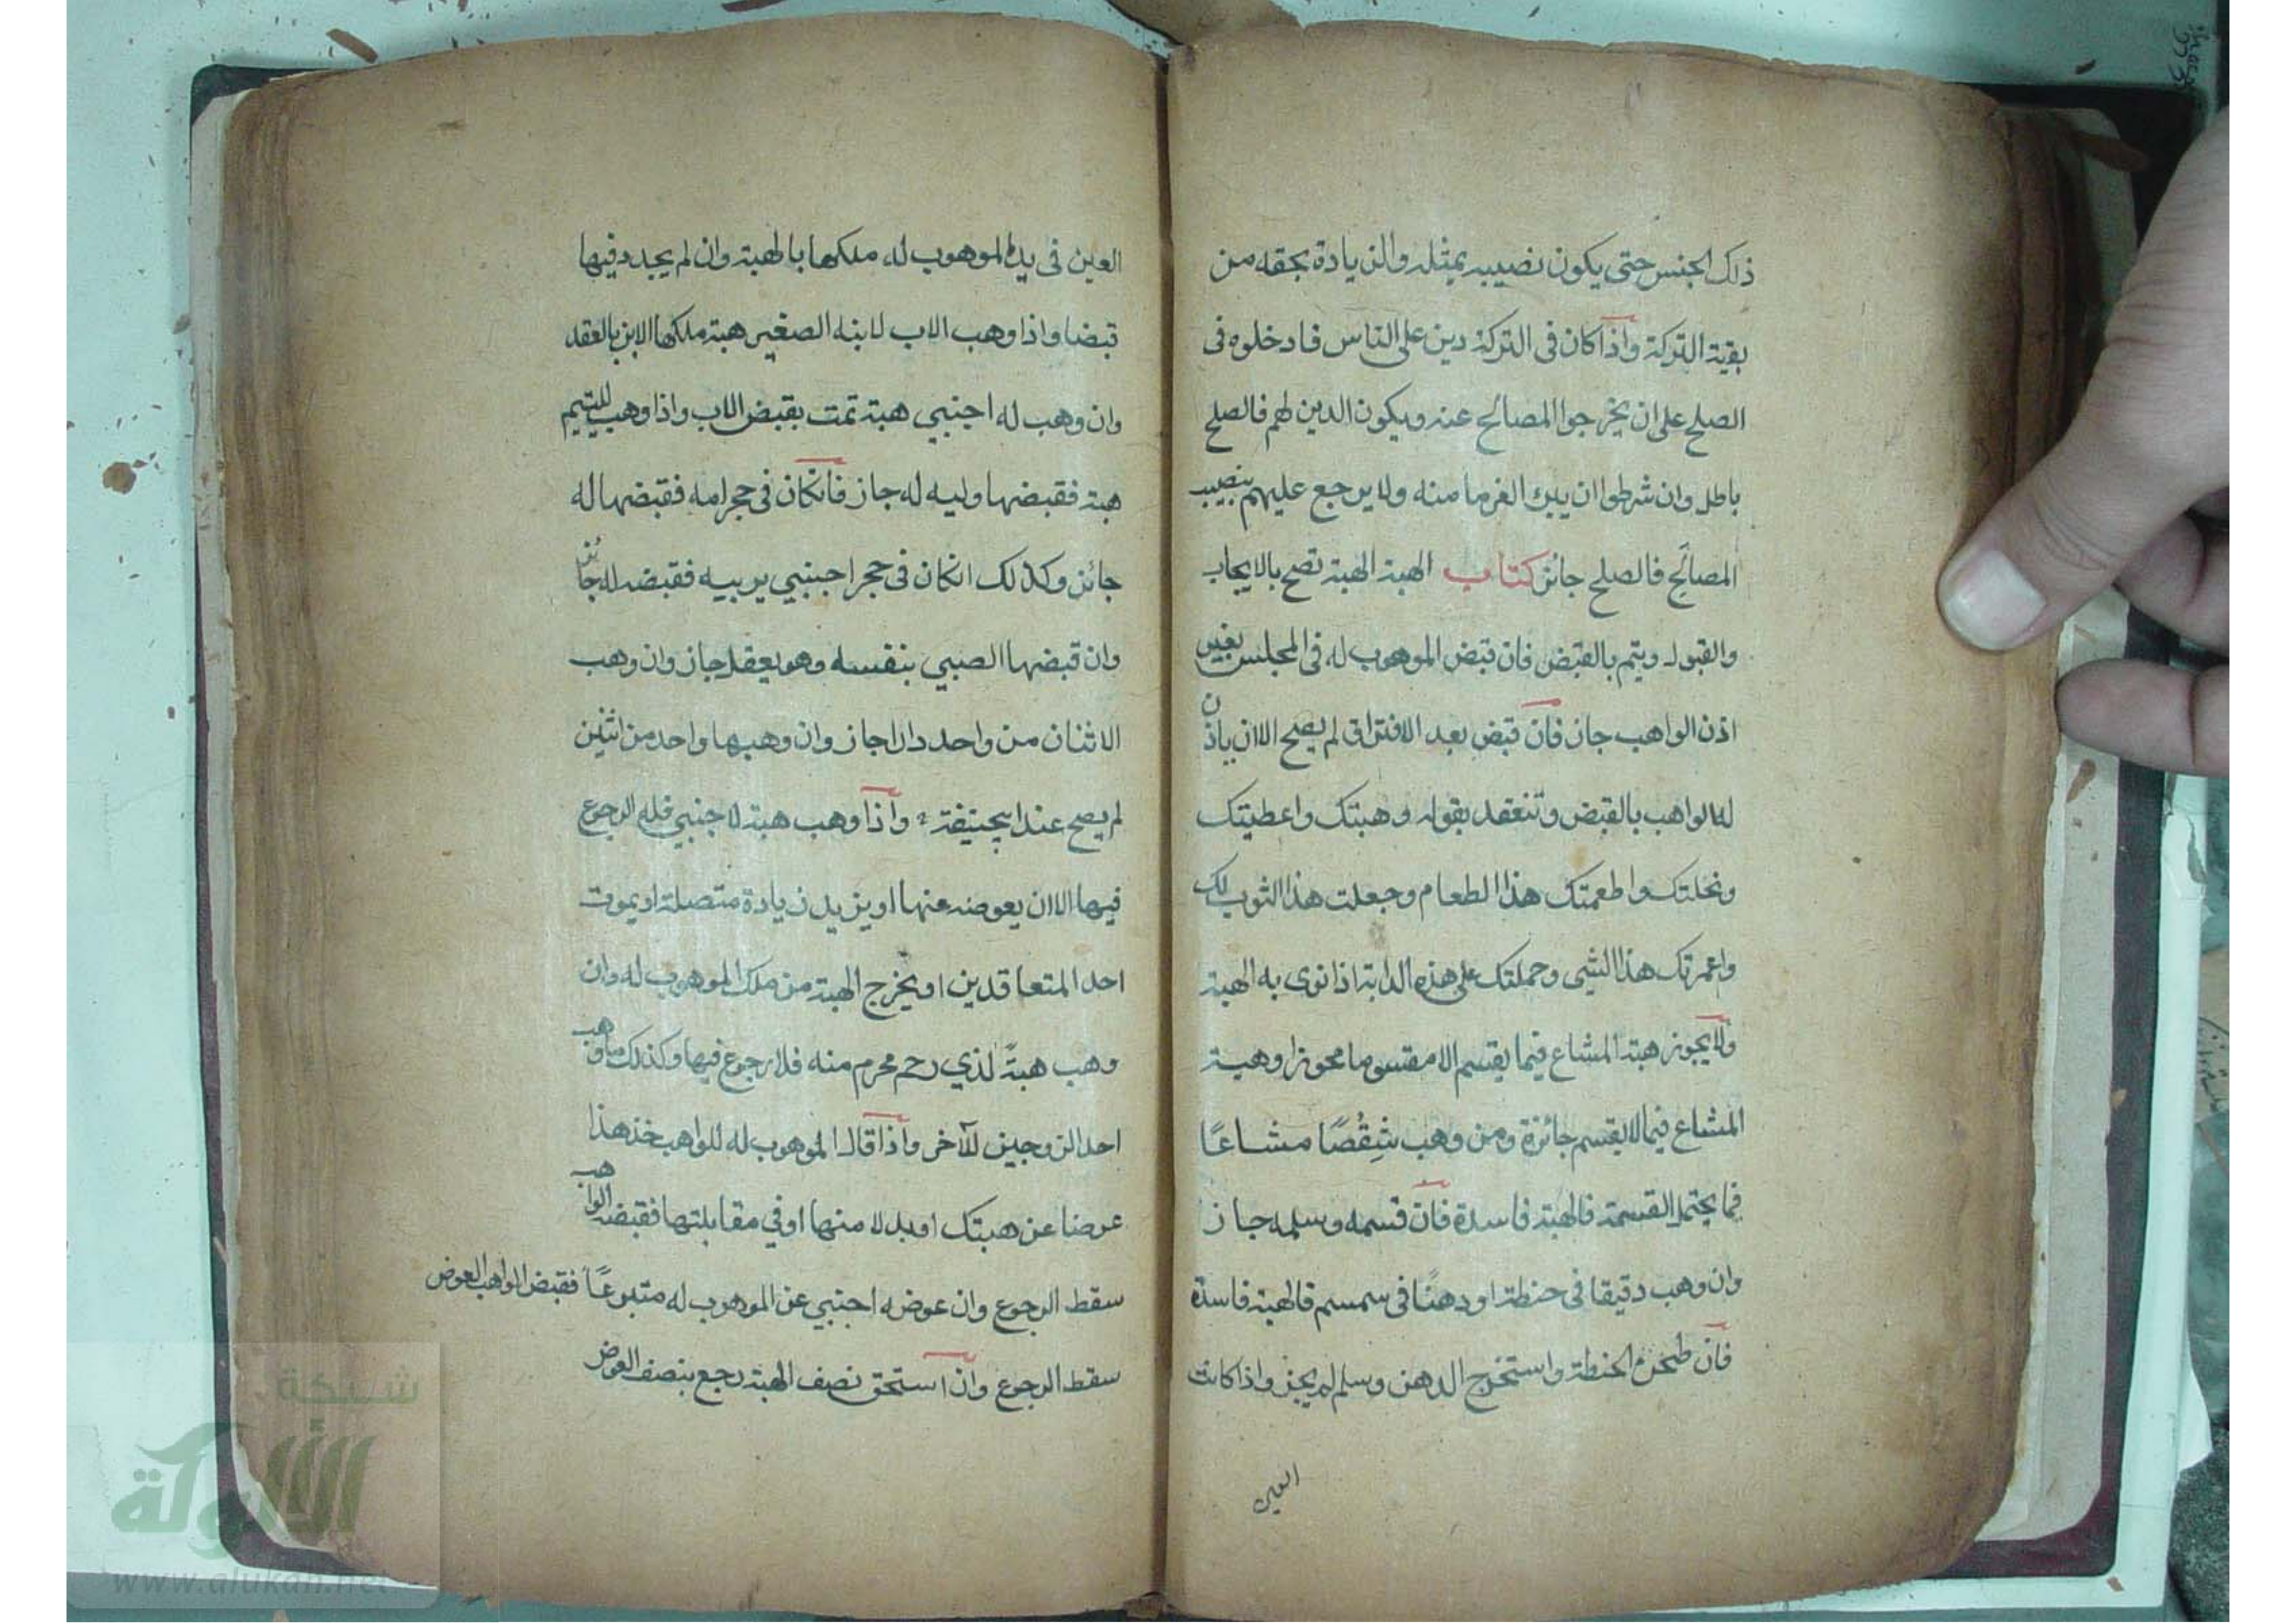 ذلك الجنس حتى يكون نصيبه بمثله والزيادة بحقه من
بقية التركة واذا كان فى التركة دين على الناس فادخلوه فى
الصلح على ان يخرجوا المصالح عنه ويكون الدين لهم فالصلح
باطل وان شرطوا ان يبرك الغرما منه ولا يرجع عليهم بنصيب
المصالَح فالصلح جائز كتاب الهبة الهبة تصح بالايجاب
والقبول ويتم بالقبض فان قبض الموهوب له فى المجلس بغير
اذن الواهب جاز فان قبض بعد الافتراق لم يصح الا ان ياذن
له الواهب بالقبض وتنعقد بقوله وهبتك واعطيتك
ونحلتك واطعمتك هذا الطعام وجعلت هذا الثوب لك
واعمرتك هذا الشى وحملتك على هذه الدابة اذا نوى به الهبة
ولا يجوز هبة المشاع فيما يقسم الا مقسوما محوزا وهبة
المشاع فيما لا يقسم جائزة ومن وهب شِقْصًا مشاعًا
فيما يحتمل القسمة فالهبة فاسدة فان قسمه وسلمه جاز
وان وهب دقيقا فى حنطة او دهنًا فى سمسم فالهبة فاسدة
فان طحن الحنطة واستخرج الدهن وسلم لم يجز واذا كانت
العين
العين فى يد الموهوب له ملكها بالهبة وان لم يجدد فيها
قبضا واذا وهب الاب لابنه الصغير هبة ملكها الابن بالعقد
وان وهب له اجنبي هبة تمت بقبض الاب واذا وهب لليتيم
هبة فقبضها وليه له جاز فانكان فى حجر امه فقبضها له
جائز وكذلك انكان فى حجر اجنبي يربيه فقبضه له جائز
وان قبضها الصبي بنفسه وهو يعقل جاز وان وهب
الاثنان من واحد دارا جاز وان وهبها واحد من اثنين
لم يصح عند ابيحنيفة واذا وهب هبة لاجنبي فله الرجوع
فيها الا ان يعوضه عنها او يزيد زيادة متصلة او يموت
احد المتعاقدين او يخرج الهبة من ملك الموهوب له وان
وهب هبةً لذي رحم محرم منه فلا رجوع فيها وكذلك ما وهب
احد الزوجين للآخر واذا قال الموهوب له للواهب خذ هذا
عرضا عن هبتك او بدلا منها او في مقابلتها فقبضه الواهب
سقط الرجوع وان عوضه اجنبي عن الموهوب له متبرعًا فقبض الواهب العوض
سقط الرجوع وان استحق نصف الهبة رجع بنصف العوض
شبكة
الألوكة
www.alukah.net